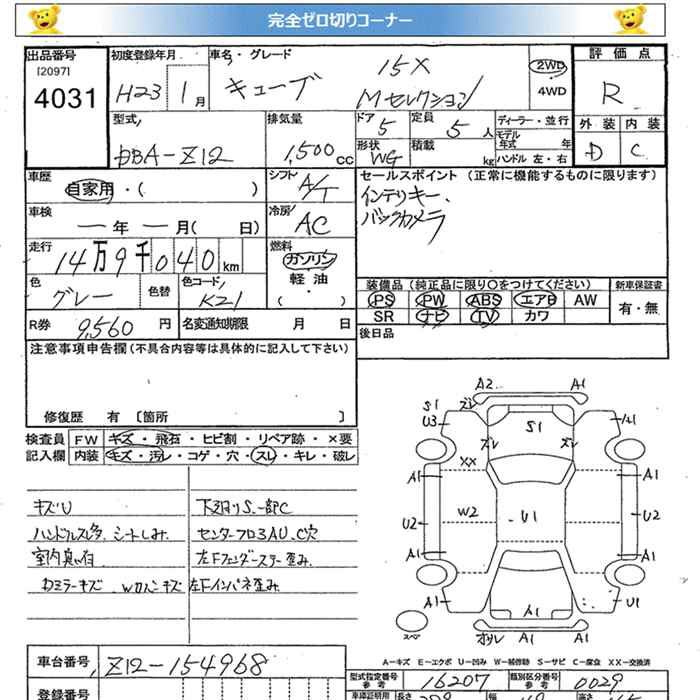 完全ゼロ切りコーナー
出品番号 初度登録年月 車名・グレード 評価点
[2097] 4031 H23 1月 キューブ 15X Mセレクション 2WD 4WD R
型式, 排気量 ドア 5 定員 5人 ディーラー・並行 外装 内装
DBA-Z12 1,500cc 形状 WG 積載 kg モデル年式 年 ハンドル 左・右 D C
車歴 自家用・( ) シフト A/T セールスポイント (正常に機能するものに限ります)
車検 ー年ー月( 日) 冷房 AC インテリキー、
バックカメラ
走行 14万9千040km 燃料 ガソリン 軽・油
色 グレー 色替 色コード K21 装備品 (純正品に限り〇をつけてください) 新車保証書
PS PW ABS エアB AW 有・無
SR ナビ TV カワ
R券 9,560円 名変通知期限 月 日 後日品
注意事項申告欄(不具合内容等は具体的に記入して下さい)
修復歴 有 [箇所 ]
検査員 FW キズ・飛石・ヒビ割・リペア跡・×要
記入欄 内装 キズ・汚レ・コゲ・穴・スレ・キレ・破レ
キズU 下廻りS、一部C
シートしみ センターフロアAU、C穴
室内
ミラーキズ
左Fインパネ歪み
A2 A1
S1 U3 ズレ S1 ズレ ズレ A1
XX A1 A1
U2 W2 U1 U2
A1 A1
A1 A1 U1
スペア A1 A1
A-キズ E-エクボ U-凹み W-補修跡 S-サビ C-腐食 XX-交換済
車台番号 Z12-154968 型式指定番号 参考 16207 類別区分番号 参考 0029
登録番号 車庫証明用 長さ 幅 高さ